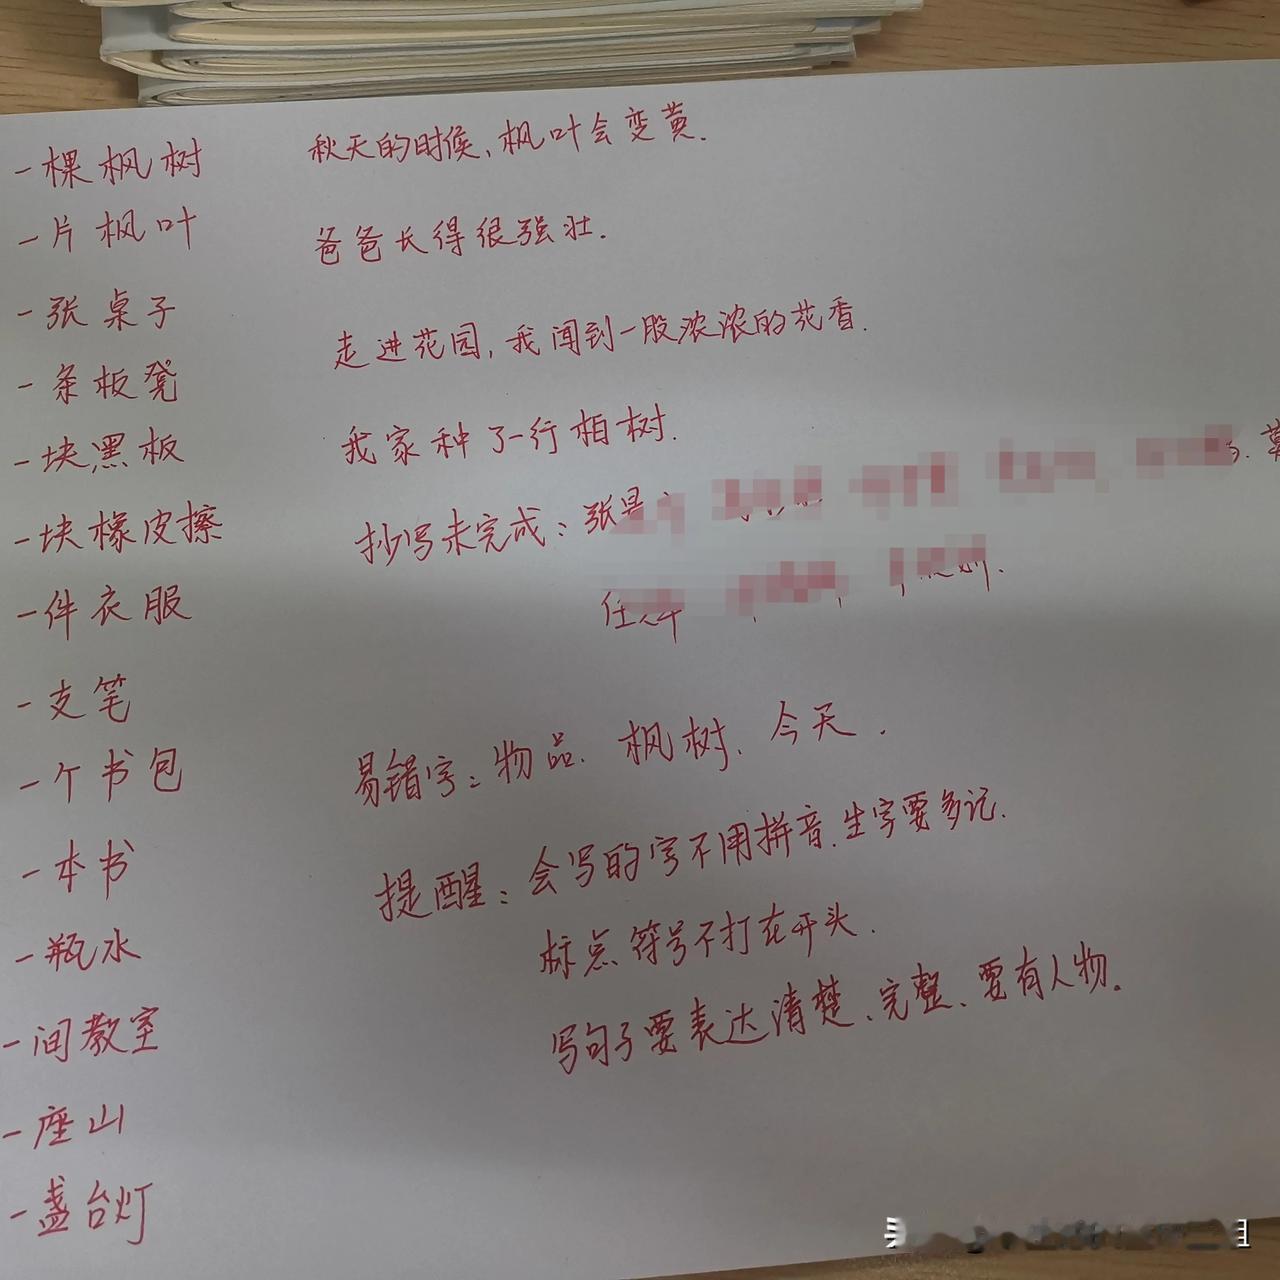 一棵枫树
一片枫叶
一张桌子
一条板凳
一块黑板
一块橡皮擦
一件衣服
一支笔
一个书包
一本书
一瓶水
一间教室
一座山
一盏台灯
秋天的时候，枫叶会变黄.
爸爸长得很强壮.
走进花园，我闻到一股浓浓的花香.
我家种了一行柏树.
抄写未完成：张
任
易错字：物品. 枫树. 今天.
提醒：会写的字不用拼音.生字要多记.
标点符号不打在开头.
写句子要表达清楚、完整、要有人物。